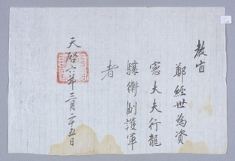 教旨
鄭經世為資
憲大夫行龍
驤衛副護軍
者
天啓六年三月二十五日